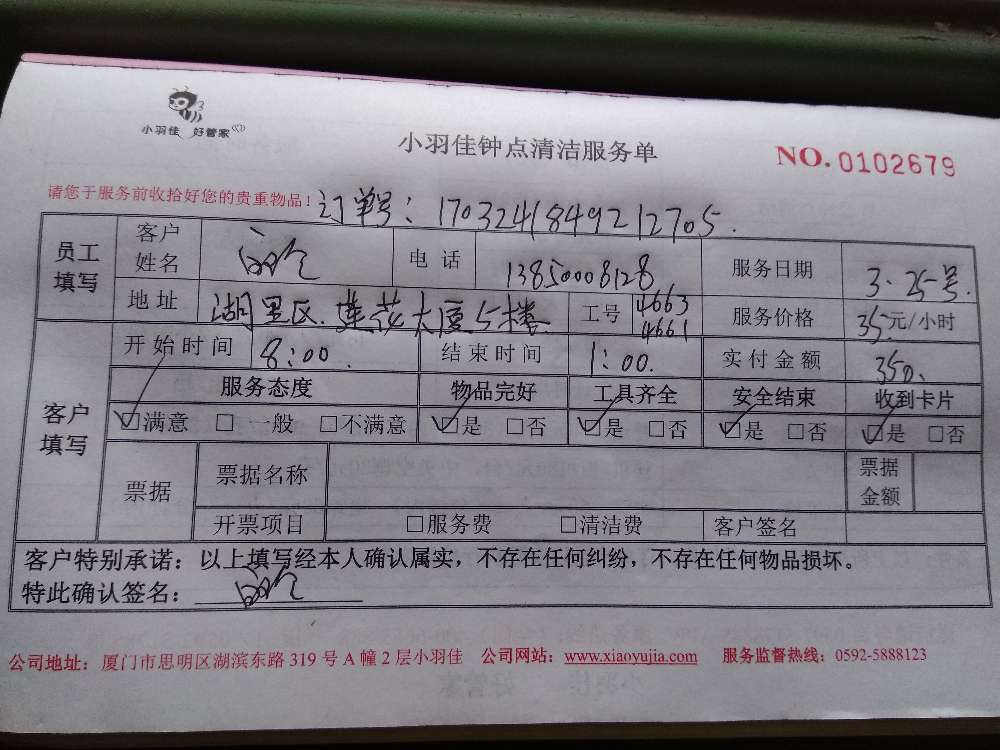 小羽佳 好管家
小羽佳钟点清洁服务单
NO.0102679
请您于服务前收拾好您的贵重物品! 订单号: 170324184921 2705.
员工填写 客户姓名 电话 13850008128 服务日期 3.25号.
地址 湖里区.莲花大厦5楼 工号 4663 4661 服务价格 35元/小时
客户填写 开始时间 8:00. 结束时间 1:00. 实付金额 350.
服务态度 物品完好 工具齐全 安全结束 收到卡片
☑满意 □一般 □不满意 ☑是 □否 ☑是 □否 ☑是 □否 ☑是 □否
票据 票据名称 票据金额
开票项目 □服务费 □清洁费 客户签名
客户特别承诺：以上填写经本人确认属实，不存在任何纠纷，不存在任何物品损坏。
特此确认签名：
公司地址：厦门市思明区湖滨东路 319 号 A 幢 2 层小羽佳 公司网站：www.xiaoyujia.com 服务监督热线：0592-5888123